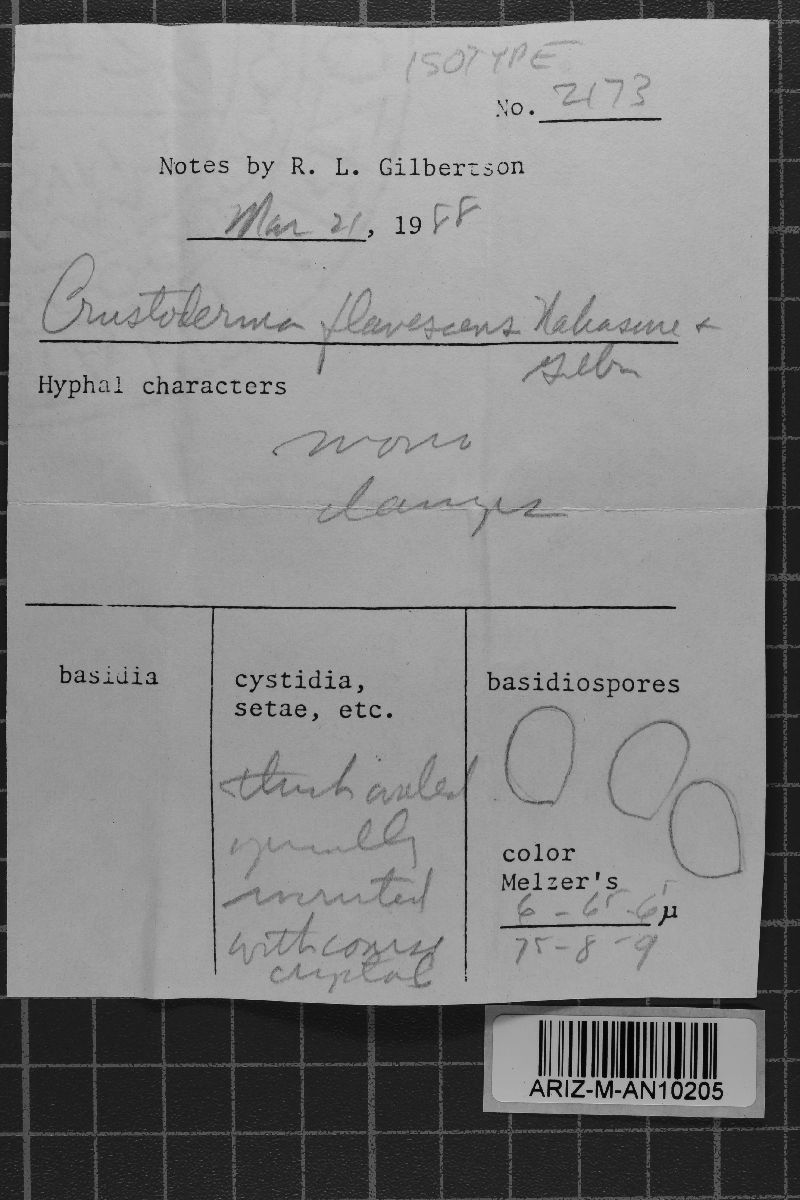 ISOTYPE
No. 2173
Notes by R. L. Gilbertson
Mar 21, 1988
Crustoderma flavescens Nakasone +
Gilbn
Hyphal characters
mono
clamps
basidia
cystidia,
setae, etc.
thick walled
apically
incrusted
with coarse
crystal
basidiospores
color
Melzer's
6 - 6.5 - 6.5 µ
7.5 - 8 - 9
ARIZ-M-AN10205